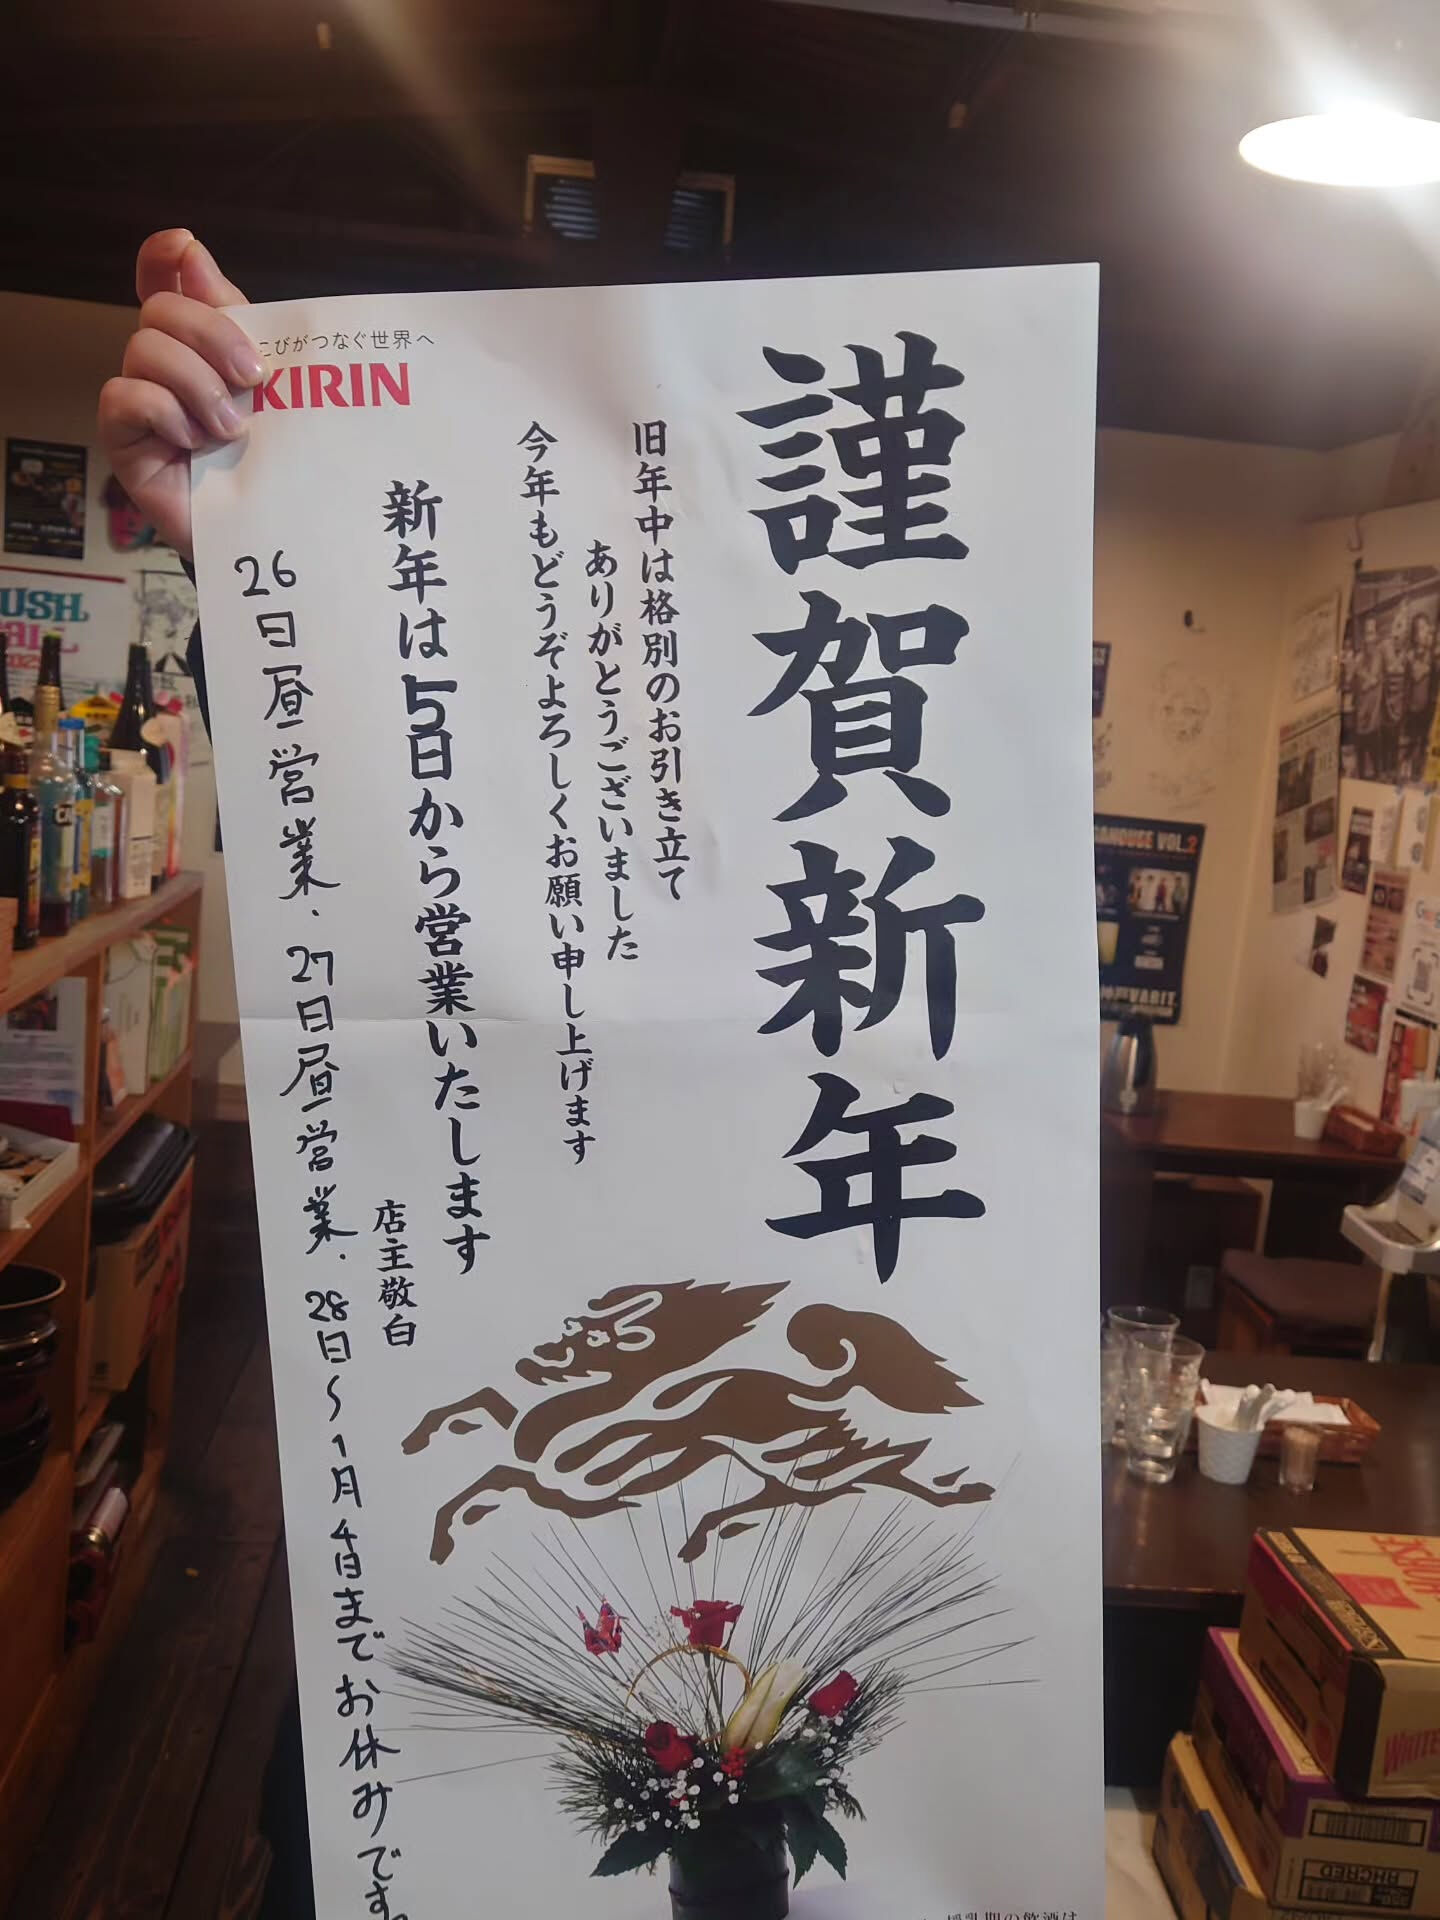 謹賀新年
旧年中は格別のお引き立て
ありがとうございました
今年もどうぞよろしくお願い申し上げます
新年は5日から営業いたします
店主敬白
26日昼営業、27日昼営業、28日〜1月4日までお休みです。
こびがつなぐ世界へ
KIRIN
授乳期の飲酒は
USH
ALL
HOUSE VOL.2
VABIT.
WHITE